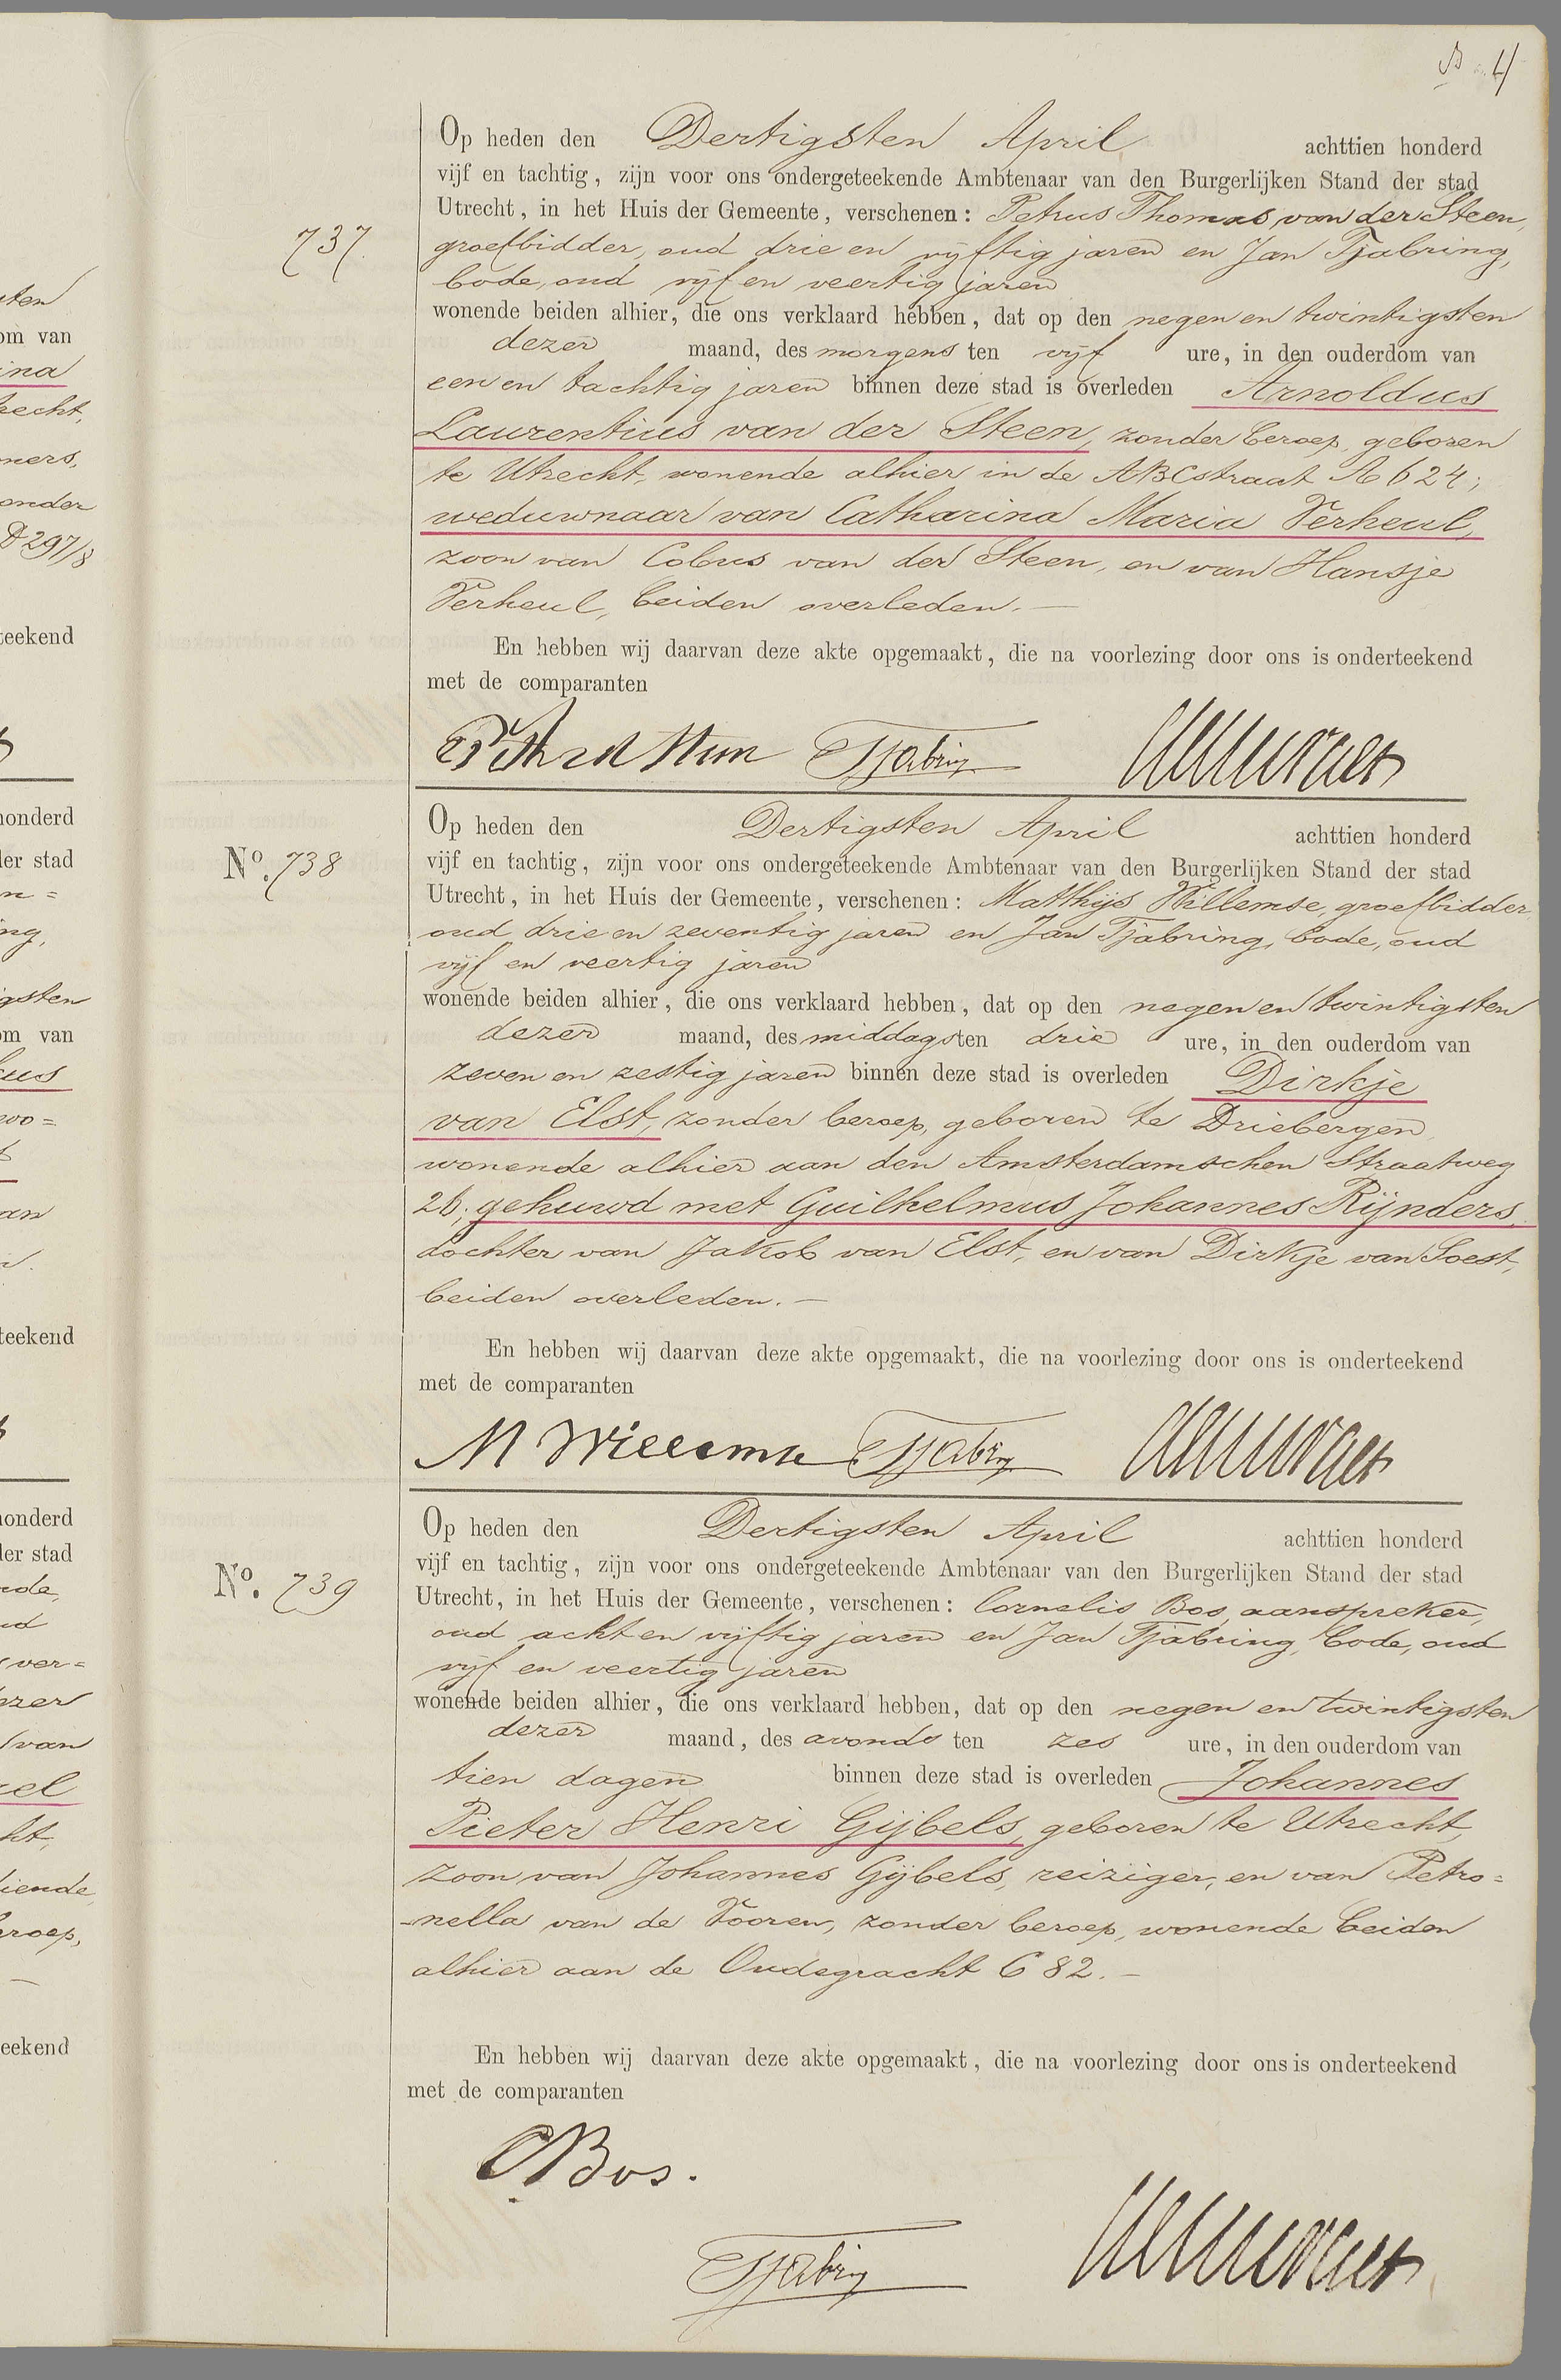 B 4
737.
Op heden den Dertigsten April achttien honderd
vijf en tachtig, zijn voor ons ondergeteekende Ambtenaar van den Burgerlijken Stand der stad
Utrecht, in het Huis der Gemeente, verschenen: Petrus Thomas van der Steen,
groefbidder, oud drie en vijftig jaren en Jan Tjabring,
bode, oud vijf en veertig jaren
wonende beiden alhier, die ons verklaard hebben, dat op den negen en twintigsten
dezer maand, des morgens ten vijf ure, in den ouderdom van
een en tachtig jaren binnen deze stad is overleden Arnoldus
Laurentius van der Steen, zonder beroep, geboren
te Utrecht, wonende alhier in de ABCstraat A 624;
weduwnaar van Catharina Maria Verheul,
zoon van Cobus van der Steen, en van Hansje
Verheul, beiden overleden.—
En hebben wij daarvan deze akte opgemaakt, die na voorlezing door ons is onderteekend
met de comparanten
Tjabring
Nº. 738
Op heden den Dertigsten April achttien honderd
vijf en tachtig, zijn voor ons ondergeteekende Ambtenaar van den Burgerlijken Stand der stad
Utrecht, in het Huis der Gemeente, verschenen: Matthijs Willemse, groefbidder,
oud drie en zeventig jaren en Jan Tjabring, bode, oud
vijf en veertig jaren
wonende beiden alhier, die ons verklaard hebben, dat op den negen en twintigsten
dezer maand, des middags ten drie ure, in den ouderdom van
zeven en zestig jaren binnen deze stad is overleden Dirkje
van Elst, zonder beroep, geboren te Driebergen,
wonende alhier aan den Amsterdamschen Straatweg
26; gehuwd met Guilhelmus Johannes Rijnders,
dochter van Jakob van Elst, en van Dirkje van Soest,
beiden overleden.—
En hebben wij daarvan deze akte opgemaakt, die na voorlezing door ons is onderteekend
met de comparanten
M Willemse Tjabring
Nº. 739
Op heden den Dertigsten April achttien honderd
vijf en tachtig, zijn voor ons ondergeteekende Ambtenaar van den Burgerlijken Stand der stad
Utrecht, in het Huis der Gemeente, verschenen: Cornelis Bos, aanspreker,
oud acht en vijftig jaren en Jan Tjabring, bode, oud
vijf en veertig jaren
wonende beiden alhier, die ons verklaard hebben, dat op den negen en twintigsten
dezer maand, des avonds ten zes ure, in den ouderdom van
tien dagen binnen deze stad is overleden Johannes
Pieter Henri Gijbels, geboren te Utrecht,
zoon van Johannes Gijbels, reiziger, en van Petro=
-nella van de Vooren, zonder beroep, wonende beiden
alhier aan de Oudegracht C 82.—
En hebben wij daarvan deze akte opgemaakt, die na voorlezing door ons is onderteekend
met de comparanten
C Bos.
Tjabring